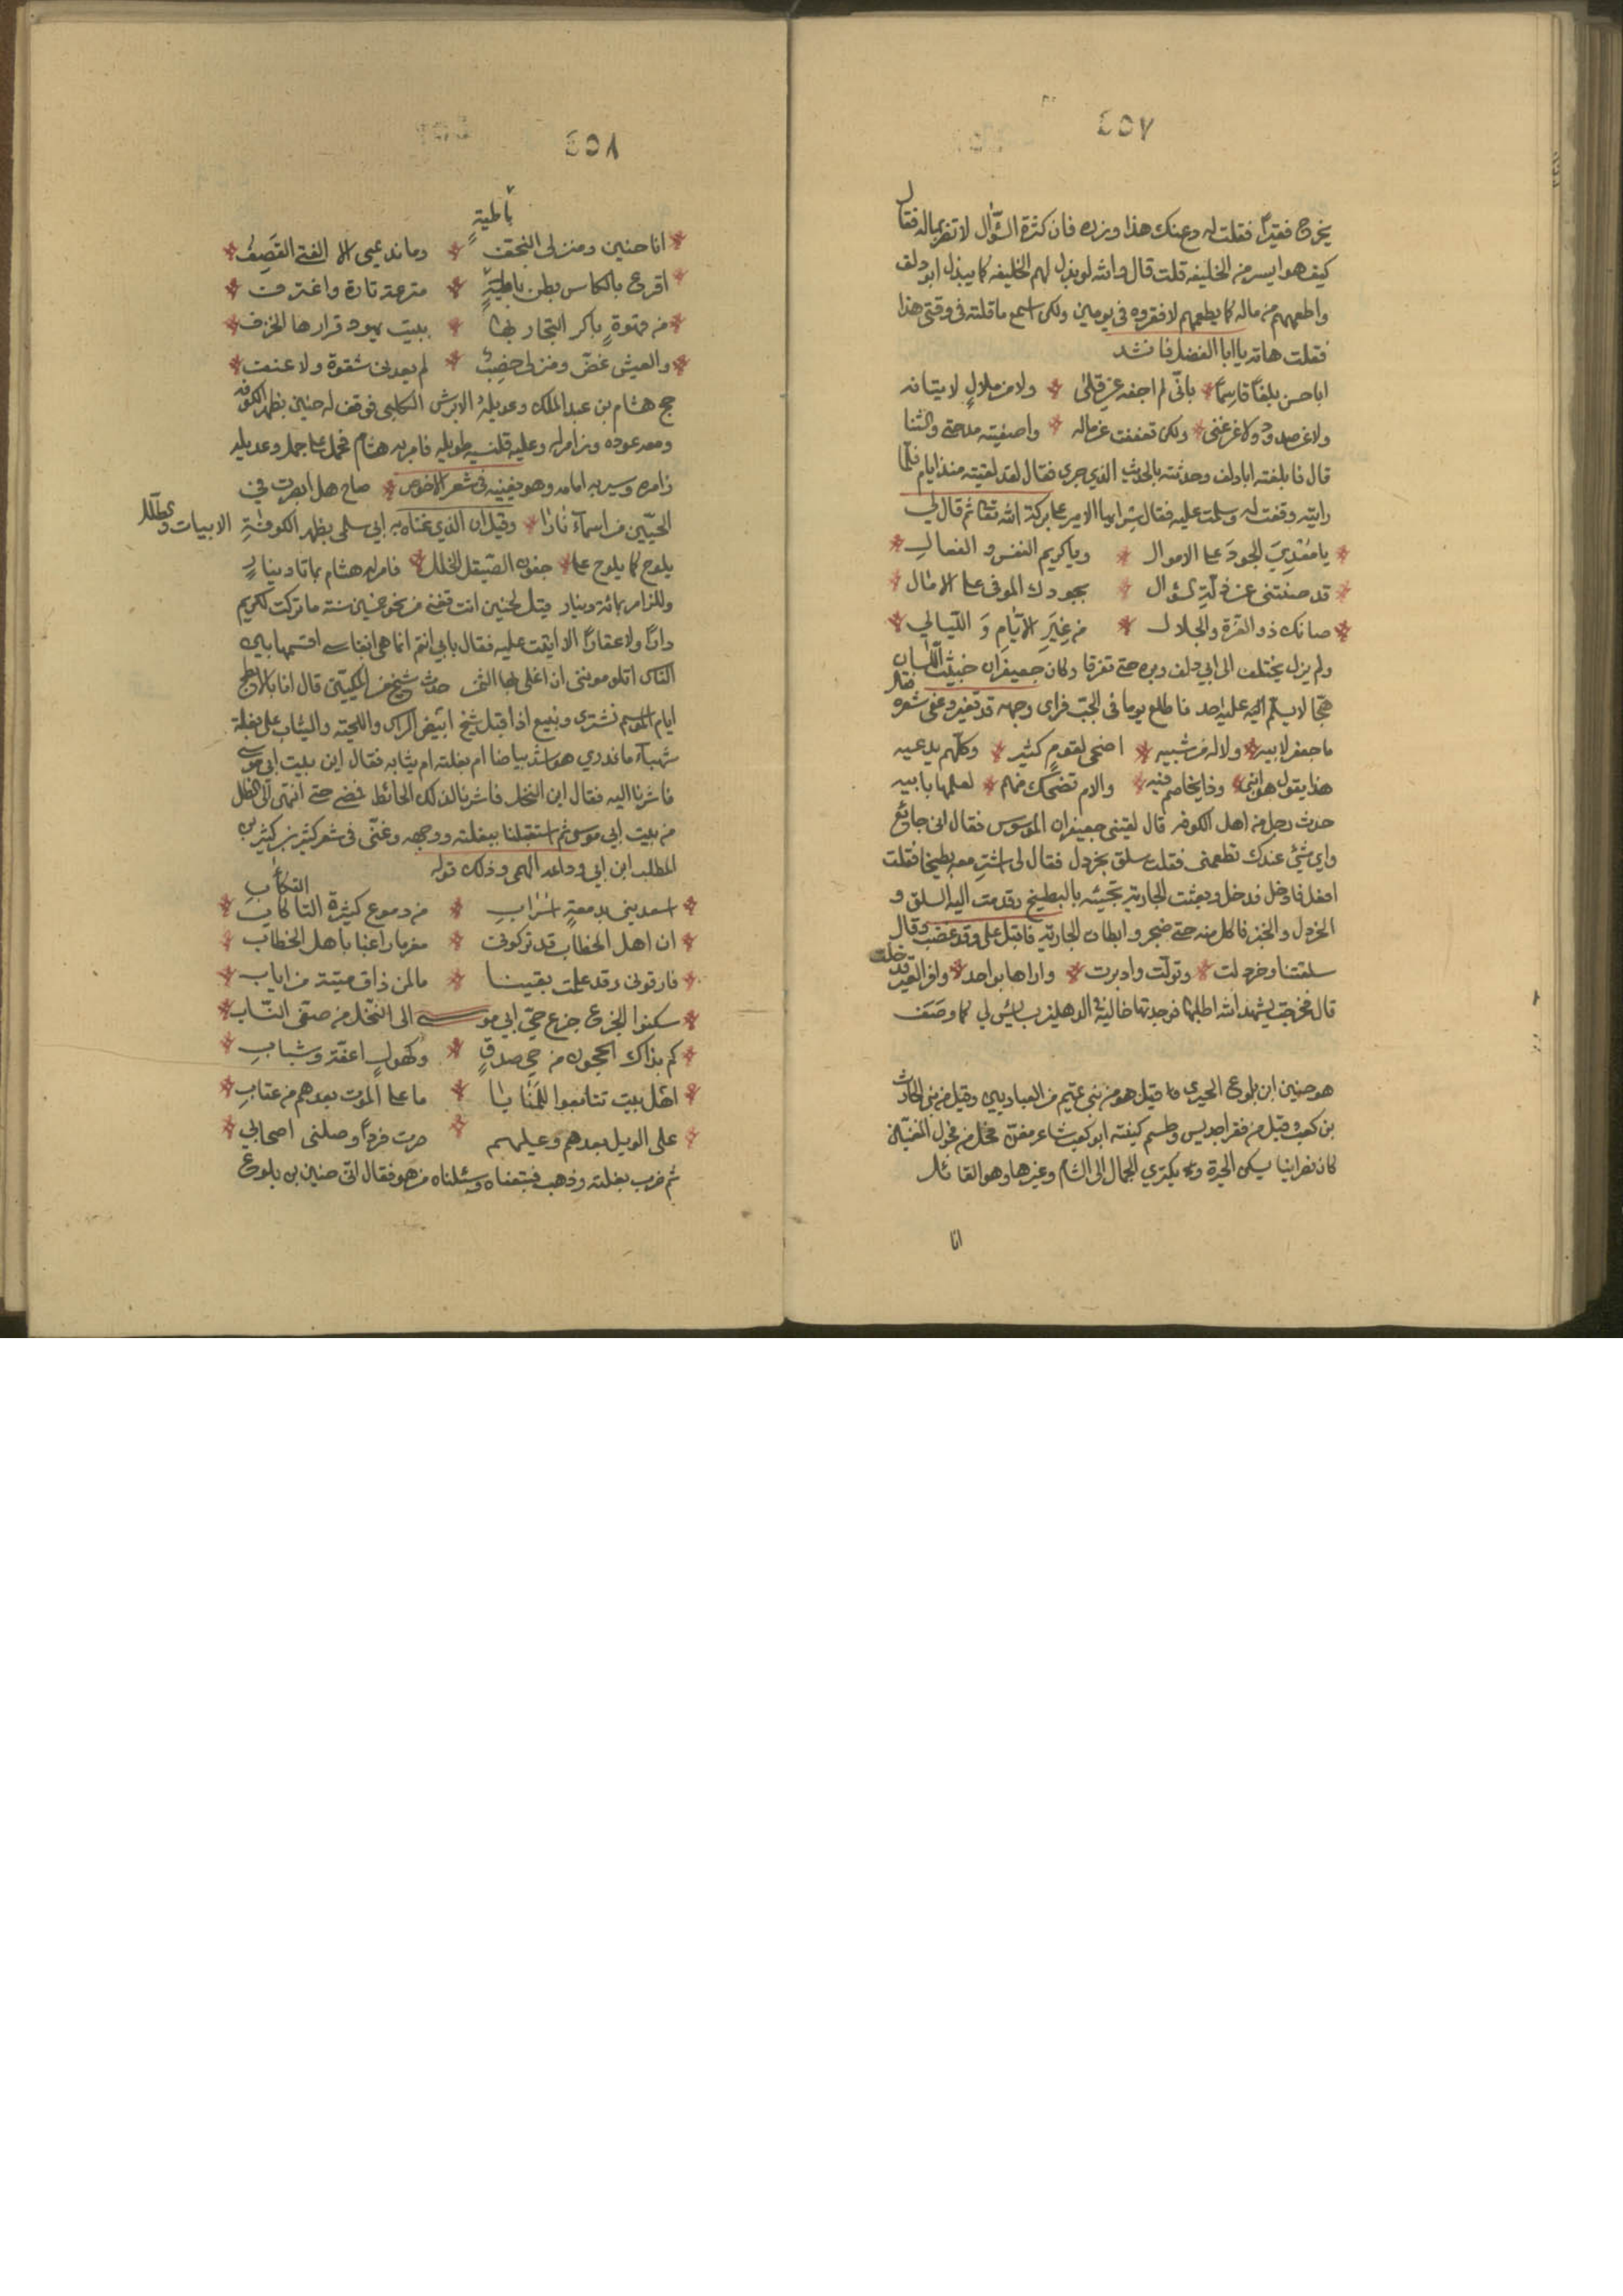 ٤٥٧
يخرج فقيرًا فقلت له دع عنك هذا وزده فان كثرة السؤال لا تضر بماله فقال
كيف هو ايسر من الخليفه قلت قال والله لو بذل لهم الخليفه كما يبذل ابو دلف
واطعمهم من ماله كما يطعمهم لافقروه في يومين ولكن اسمع ما قلته في وقتي هذا
فقلت هاته يا ابا الفضل فانشد
ابا حسن بلغًا قاسمًا بانّي لم اجفه عن قلى ولا من ملال لاتيانه
ولا عن صدود ولا عن غنى ولكن تعففت عن ماله واصفيته مدحتي والثنا
قال فابلغته ابا دلف وحدثته بالحديث الذي جرى فقال لقد لقيته منذ ايام فلما
رايته وقفت له وسلمت عليه فقال سر ايها الامير على بركة الله تعا ثم قال لي
يا مُعْدِيَ الجودَ على الاموال ويا كريم النفس و الفعالِ
قد صنتني عن ذلّةِ السؤال بجودك الموفى على الامال
صانك ذو العزة والجلال من غِيَرِ الايّامِ وَ اللّيالي
ولم يزل يختلف الى ابي دلف وبره حتى تفرقا وكان جعيفران خبيث اللسان
هجّا لا يسلم عليه احد فاطلع يوما في الجب فراى وجهه قد تغير وعفى شعره فقال
ما جعفر لابيه ولا له من شبيه اضحى لقوم كثير وكلهم يدعيه
هذا يقول هو ابني وذا يخاصم فيه والام تضحك منهم لعلمها بابيه
حدث رجل من اهل الكوفه قال لقيني جعيفران الموسوس فقال اني جائع
واي شئ عندك تطعمني فقلت سلق بخردل فقال لي اشتر معه بطيخا فقلت
افعل فادخل فدخل وبعثت الجارية تجيئه بالبطيخ وقدمت اليه السلق و
الخردل والخبز فاكل منه حتى ضجر وابطات الجارية فاقبل علي وقد غضب وقال
سلقتنا وخردلت وتولّت وادبرت واراها بواحد وافر الـ قد خلت
قال فخرجت يشهد الله اطلبها فوجدتها خالية في الدهليز بسائس لي كما وصَف
هو حنين ابن بلوع الحيرى قيل هو من بني تميم من العباديين وقيل من بني الحارث
بن كعب وقيل من جديس وطسم كنيته ابو كعب شاعر مغنّ فحل من فحول المغنين
كان نصرانيا يسكن الحيرة و يكترى الجمال الى الشام وغيرها وهو القائل
انا
٤٥٨
باطيةٍ
انا حنين ومنزلي النجف وما نديمى الا الفتى القَصِفُ
اقرع بالكاس بطن باطيةٍ مترعة تارة واغترف
من قهوةٍ باكر التجار بها ببيت يهود قرارها الخزف
والعيش غضّ ومنزلي خصِبٌ لم يعدني شقوة ولا عنف
حج هشام بن عبد الملك وعديله الابرش الكلبى فوقف له حنين بظهر الكوفه
ومعه عوده وزامر له وعليه قلنسيه طويله فامر به هشام فحمل على جمل وعديله
زامره وسير به امامه وهو يغنيه في شعر الاخوص صاح هل ابصرت في
الحيّين من اسماءَ نارًا وقيل ان الذي غناه به ابي سلمى بظهر الكوفة الابيات وطلل
يلوح كما يلوح على جفون الصّيقل الخلل فامر له هشام بمائتا دينار
وللزامر بمائة دينار قيل لحنين انت تغني من نحو خمسين سنة ما تركت لكريم
دارًا ولا عقارًا الا اتيت عليه فقال بابي انتم انما هي انفاسي اقسمها بين
الناس اتلومونني ان اغلى بها الثمن حدث شيخ من المكيّين قال انا بالابطح
ايام الموسم نشترى ونبيع اذ اقبل شيخ ابيض الراس واللحية والثياب على بغلة
شهباء ما ندري هو اشد بياضا ام بغلته ام ثيابه فقال اين بيت ابي موسى
فاشرنا اليه فقال اين النخل فاشرنا لذلك الحائط فمضى حتى انتهى الى الظل
من بيت ابي موسى ثم استقبلنا ببغلته ووجهه وغنّى في شعر كثير بن كثير بن
المطلب ابن ابي وداعه السهمى وذلك قوله
التسكابِ
اسعديني بدمعةٍ اسرابِ من دموع كثيرة التاكاب
ان اهل الخطاب قد تركوني مغرما راغبا باهل الخطاب
فارقوني وقد علمت يقينا ما لمن ذاق ميتة من اياب
سكنوا الجزع جزع حيّ ابي موسى الى النخل من صفى السّباب
كم بذاك الحجون من حي صدقٍ وكهولٍ اعفة وشبابِ
اهل بيت تتابعوا للمَنايا ما على الموت بعدهم من عتابِ
علي الويل بعدهم وعليهم صرت فردًا وصلني اصحابي
ثم ضرب بغلته وذهب فتبعناه وسئلناه من هو فقال انّي حنين بن بلوع